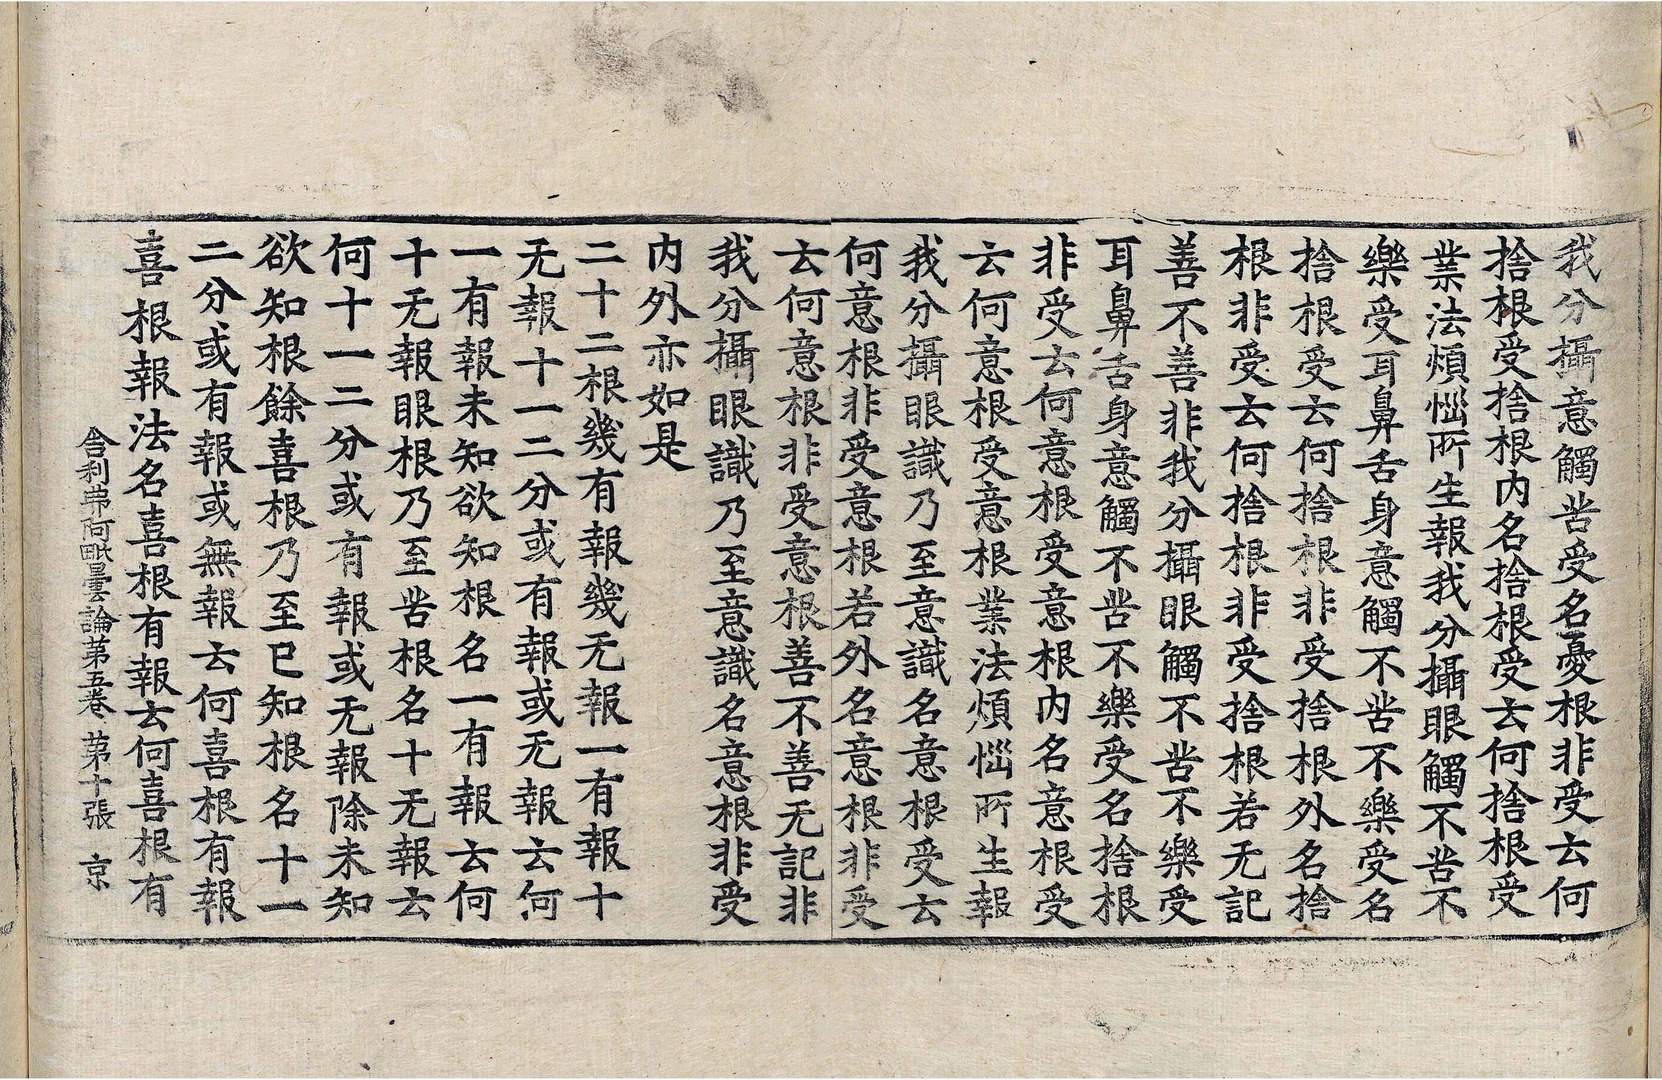 我分攝意觸苦受名憂根非受云何
捨根受捨根内名捨根受云何捨根受
業法煩惱所生報我分攝眼觸不苦不
樂受耳鼻舌身意觸不苦不樂受名
捨根受云何捨根非受捨根外名捨
根非受云何捨根非受捨根若无記
善不善非我分攝眼觸不苦不樂受
耳鼻舌身意觸不苦不樂受名捨根
非受云何意根受意根内名意根受
云何意根受意根業法煩惱所生報
我分攝眼識乃至意識名意根受云
何意根非受意根若外名意根非受
云何意根非受意根善不善无記非
我分攝眼識乃至意識名意根非受
内外亦如是
二十二根幾有報幾无報一有報十
无報十一二分或有報或无報云何
一有報未知欲知根名一有報云何
十无報眼根乃至苦根名十无報云
何十一二分或有報或无報除未知
欲知根餘喜根乃至已知根名十一
二分或有報或無報云何喜根有報
喜根報法名喜根有報云何喜根有
舍利弗阿毗曇論第五卷 第十張 京